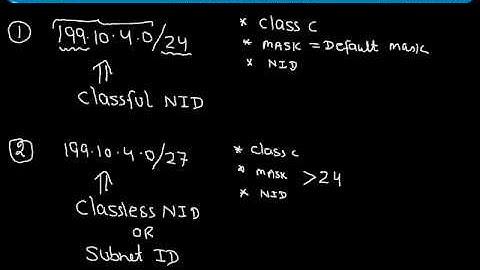 ① 199.10.4.0/24
Classful NID
* Class C
* MASK = Default mask
* NID
② 199.10.4.0/27
Classless NID
OR
Subnet ID
* Class C
* MASK > 24
* NID